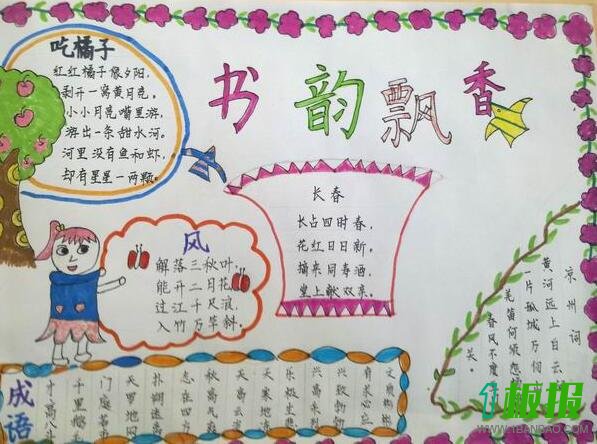 书韵飘香
吃橘子
红红橘子像夕阳，
剥开一窝黄月亮。
小小月亮嘴里游，
游出一条甜水河。
河里没有鱼和虾，
却有星星一两颗。
长春
长占四时春，
花红日日新。
摘来同寿酒，
堂上献双亲。
风
解落三秋叶，
能开二月花，
过江千尺浪，
入竹万竿斜。
凉州词
黄河远上白云
一片孤城万仞
羌笛何须怨
春风不度
关。
成语
才高八斗
千里
门庭若市
天罗地网
扑朔迷离
志在四方
秋高气爽
天高云淡
天寒地冻
乐极生悲
1板报
WWW.1BANBAO.COM